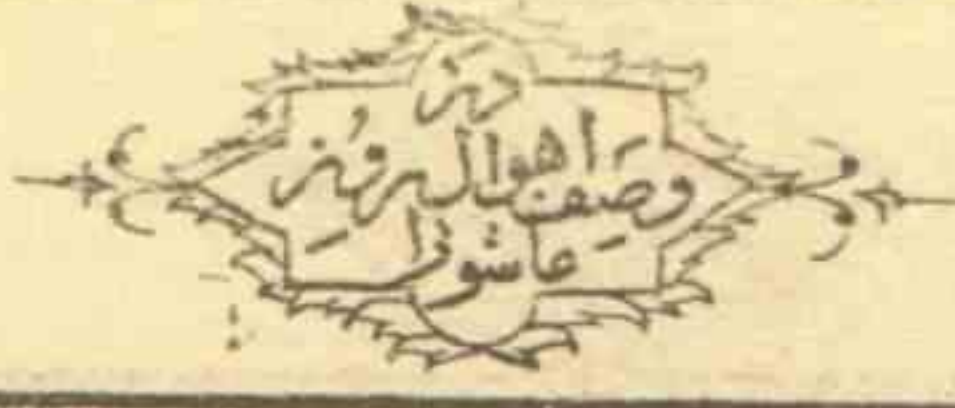 در
وصف اهوال روز
عاشورا